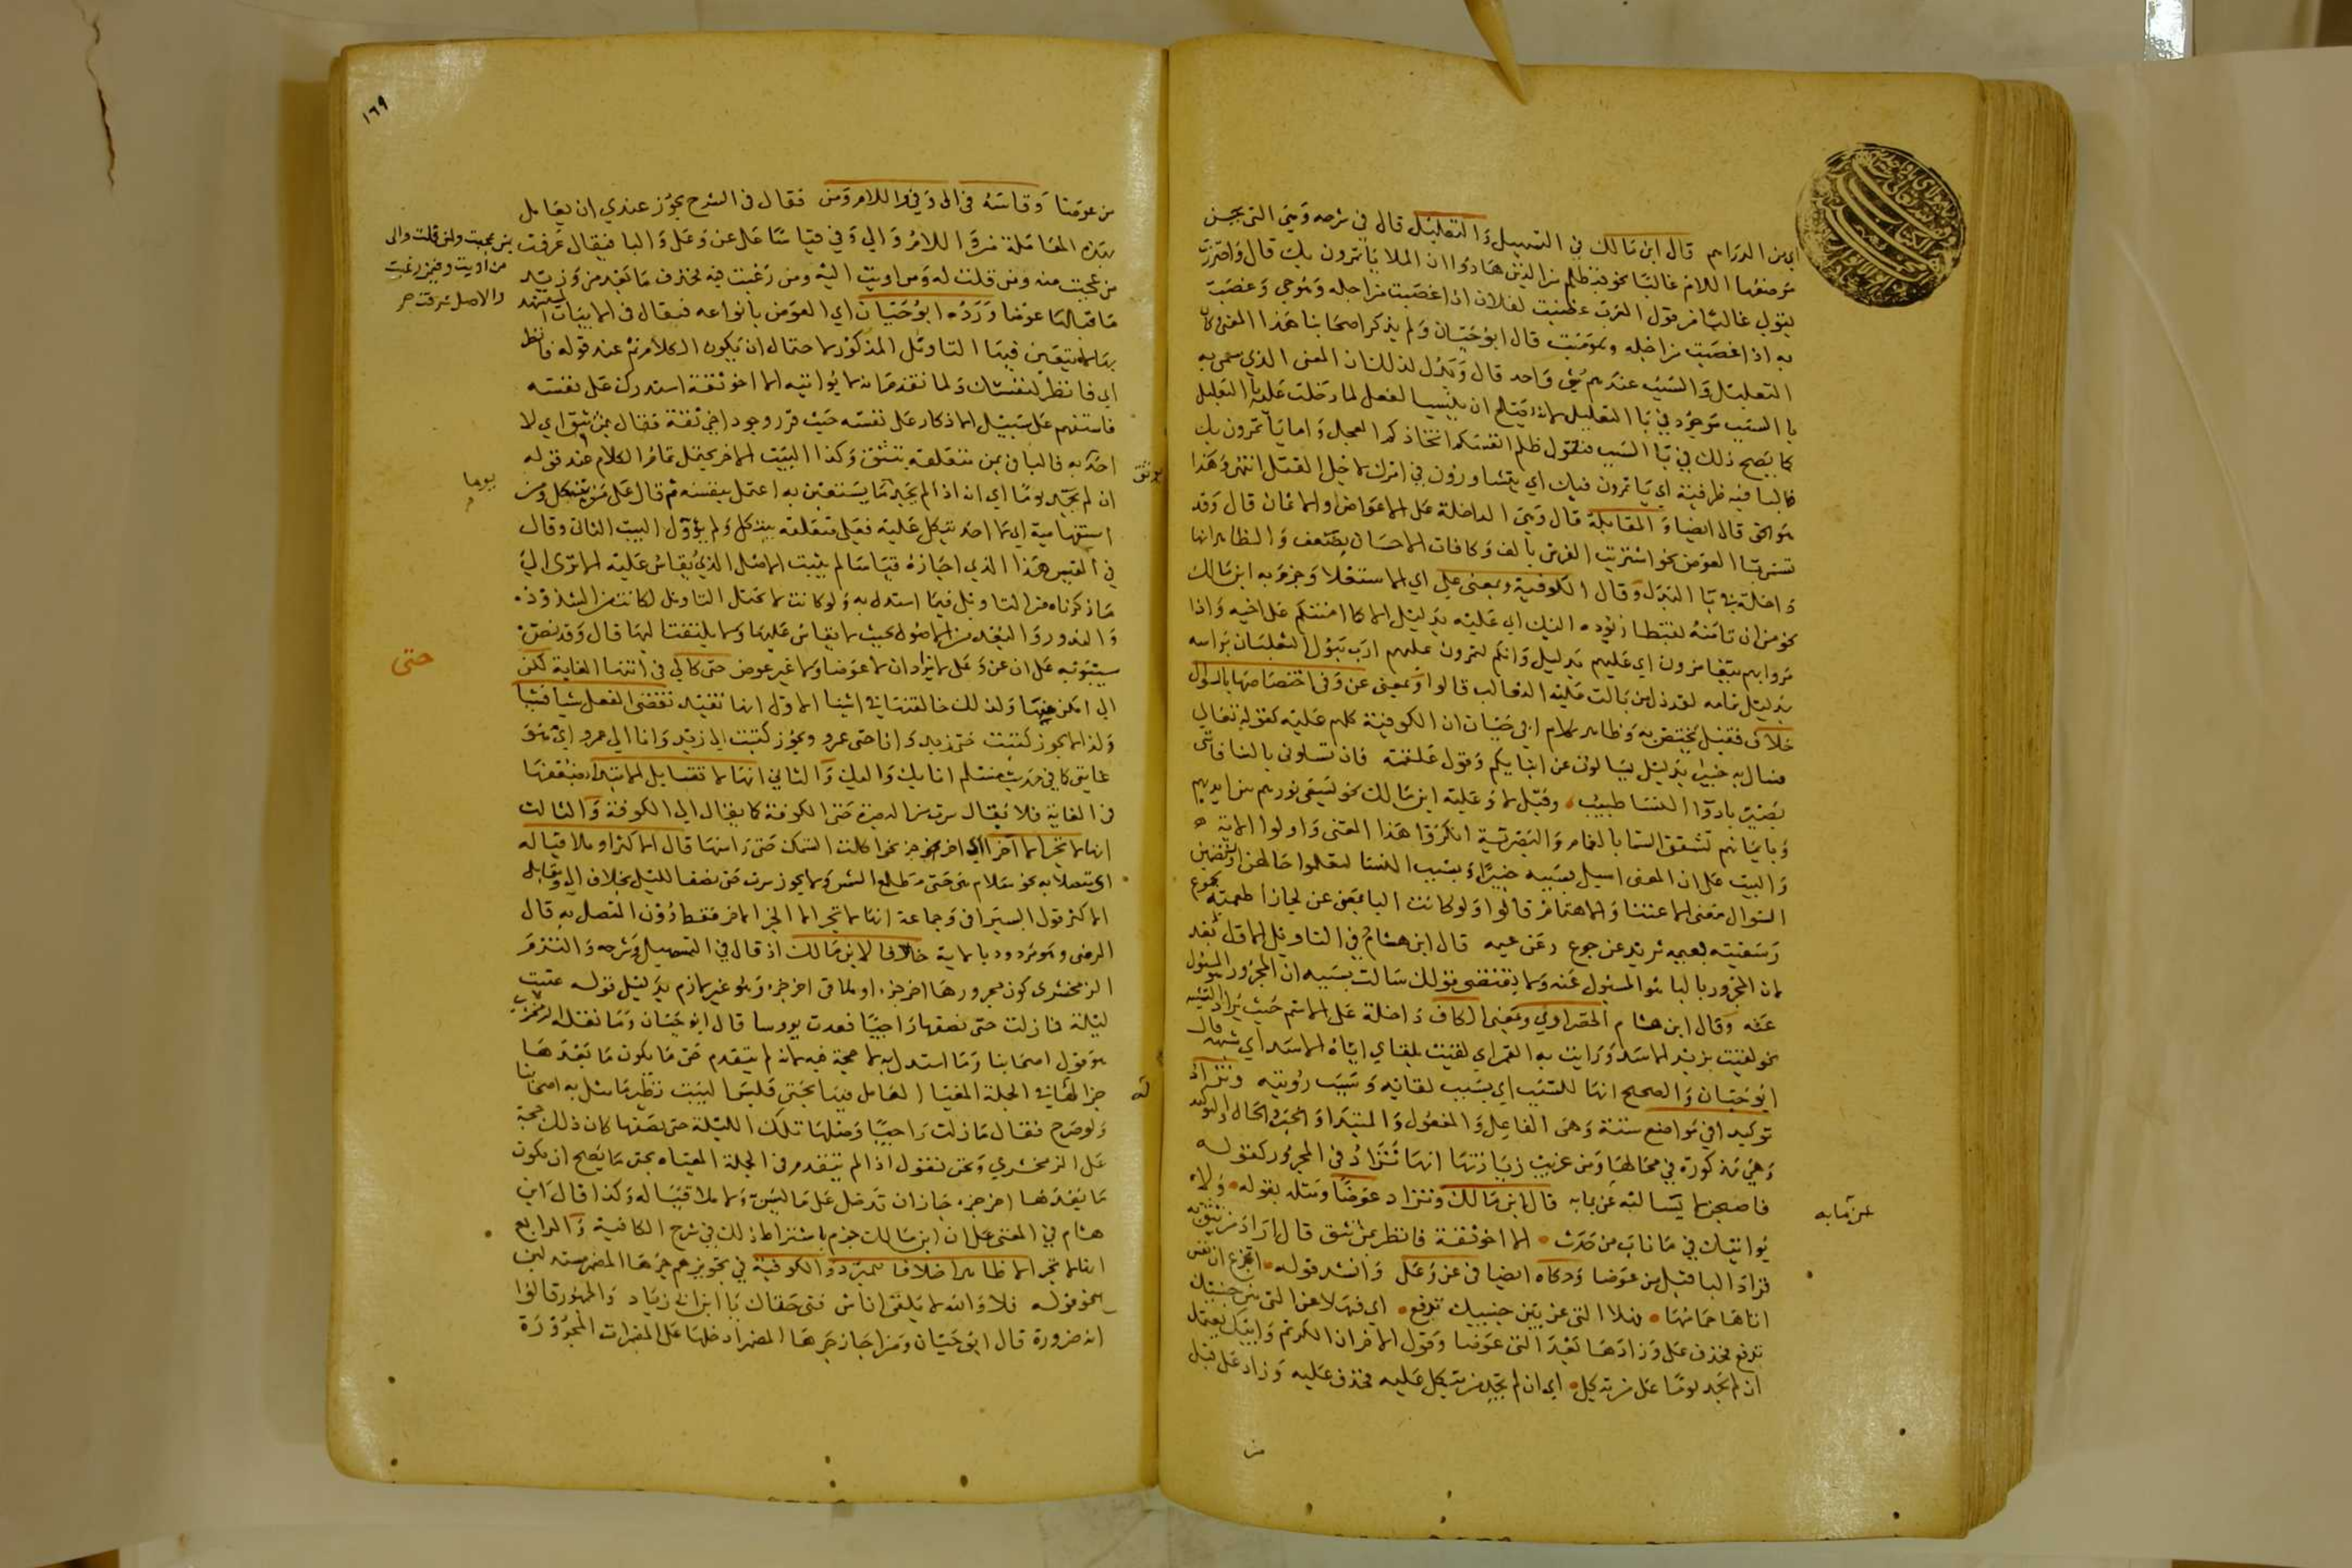 اي من الدراهم قال ابن مالك في التسهيل والتعليل قال في شرحه وهي التي يحسن
موضعها اللام غالبا نحو فبظلم من الذين هادوا ان الملا ياتمرون بك قال واحترزت
بقولي غالبا من قول العرب غضبت لفلان اذا غضبت من اجله وهو حي وغضبت
به اذا غضبت من اجله وهو ميت قال ابو حيان ولم يذكر اصحابنا هذا المعنى كان
التعليل والسبب عندهم شي واحد قال ويدل لذلك ان المعنى الذي سمي به
با السبب موجود في با التعليل لانه يصلح ان ينسب الفعل لما دخلت عليه با التعليل
كما يصح ذلك في با السبب فتقول ظلم انفسكم اتخاذكم العجل واما ياتمرون بك
فالبا فيه ظرفية اي ياتمرون فيك اي يتشاورون في امرك لاجل القتل انتهى وهذا
هو الحق قال ايضا والمقابلة قال وهي الداخلة على الاعواض والاثمان قال وقد
تسمى با العوض نحو اشتريت الفرس بالف وكافات الاحسان بضعف والظاهر انها
داخلة في با البدل وقال الكوفية وبمعنى على اي الاستعلا وجزم به ابن مالك
نحو من ان تامنه بقنطار يؤده اليك اي عليه بدليل الا كما امنتكم على اخيه واذا
مروا بهم يتغامزون اي عليهم بدليل وانكم لتمرون عليهم ارب يبول الثعلبان براسه
بدليل تمامه لقد ذل من بالت عليه الثعالب قالوا وبمعنى عن وفي اختصاصها بالسؤال
خلاف فقيل يختص به وظاهر كلام ابي حيان ان الكوفية كلهم عليه كقوله تعالى
فسال به خبيرا بدليل يسالون عن انبايكم وقول علقمة فان تسالوني بالنسا فانني
بصير بادوا النسا طبيب وقيل لا وعليه ابن مالك نحو يسعى نورهم بين ايديهم
وبايمانهم تشقق السما بالغمام والبصرية انكروا هذا المعنى واولوا الاية
والبيت على ان المعنى اسيل بسببه خبيرا وبسبب النسا لتعلموا حالهن او تضمين
السوال معنى الاعتنا والاهتمام قالوا ولو كانت البا بمعنى عن لجاز اطعمته بجوع
وسقيته بعيمه تريد عن جوع وعن عيمه قال ابن هشام في التاويل الاول بعد
لان المجرور بالبا هو المسئول عنه ولا يقتضي قولك سالت بسببه ان المجرور هو المسئول
عنه وقال ابن هشام الخضراوي ومعنى الكاف داخلة على الاسم حيث يراد التشبيه
نحو لقيت بزيد الاسد ورايت به القمر اي لقيت بلقاي اياه الاسد اي شبهه قال
ابو حيان والصحيح انها للسبب اي بسبب لقائه وسبب رؤيته وتزاد
توكيدا في مواضع ستة وهي الفاعل والمفعول والمبتدا والخبر والحال والتوكيد
وهي مذكورة في محالها ومن غريب زيادتها انها تزاد في المجرور كقوله
فاصبحن لا يسالنه عن بمابه قال ابن مالك وتزاد عوضا ومثله بقوله ولا
يواتيك في ما ناب من حدث الا اخو ثقة فانظر بمن تثق قال اراد من تثق به
فزاد البا قبل من عوضا وحكاه ايضا في عن وعلى وانشد قوله اتجزع ان نفس
اتاها حمامها فهلا التي عن بين جنبيك تدفع اي فهلا عن التي بين جنبيك
تدفع فحذف على وزادها بعد التي عوضا وقول الاخر ان الكريم وابيك يعتمل
ان لم يجد يوما على من يتكل اي ان لم يجد من يتكل عليه فحذف عليه وزاد على قبل
من
عن بمابه
١٦٩
من عوضا وقاسه في الى وفي واللام ومن فقال في الشرح يجوز عندي ان يعامل
بهذه المعاملة من واللام والى وفي قياسا على عن وعلى والبا فيقال عرفت
من عجبت منه ومن قلت له ومن اويت اليه ومن رغبت فيه فحذف ما بعد من وزيد
ما قبلها عوضا ورده ابو حيان اي العوض بانواعه فقال في الابيات المستشهد
بها لا يتعين فيها التاويل المذكور لاحتمال ان يكون الكلام تم عند قوله فانظر
اي فانظر لنفسك ولما تقدم انه لا يواتيه الا اخو ثقة استدرك على نفسه
فاستفهم على سبيل الانكار على نفسه حيث قرر وجود اخي ثقة فقال بمن تثق اي لا
احد به فالبا في بمن متعلقة بتثق وكذا البيت الاخر يحتمل تمام الكلام عند قوله
ان لم يجد يوما اي انه اذا لم يجد ما يستعين به اعتمل بنفسه ثم قال على من يتكل ومن
استفهامية اي لا احد يتكل عليه فعلى متعلقة بيتكل ولم يؤول البيت الثاني وقال
في القيس هذا الذي اجازه قياسا لم يثبت الاصل الذي يقاس عليه الا ترى الى
ما ذكرناه من التاويل فيما استدل به ولو كانت لا تحتمل التاويل لكانت من الشذوذ
والندور والبعد من الاصول بحيث لا يقاس عليها ولا يلتفت اليها قال وقد نص
سيبويه على ان عن وعلى لا يزادان لا عوضا ولا غير عوض حتى كالى في انتها الغاية لكن
الى امكن منها ولذلك خالفتها في اشيا الاول انها تفيد تقضي الفعل شيا فشيا
ولذا لا يجوز كتبت حتى زيد وانا حتى عمرو ويجوز كتبت الى زيد وانا الى عمرو اي هو
غايتي كما في حديث مسلم انا بك واليك والثاني انها لا تقابل الابتدا لضعفها
في الغاية فلا يقال سرت من البصرة حتى الكوفة كما يقال الى الكوفة والثالث
انها لا تجر الا آخرا او اخر جز نحو اكلت السمكة حتى راسها قال الاكثر او ملاقيا له
اي متصلا به نحو سلام هي حتى مطلع الفجر ولا يجوز سرت حتى نصف الليل بخلاف الى ويقابل
الاكثر قول السيرافي وجماعة انها لا تجر الا الجز الاخر فقط دون المتصل به قال
الرضي وهو مردود بالاية خلافا لابن مالك اذ قال في التسهيل وشرحه والتزم
الزمخشري كون مجرورها اخر جزء او ملاقي اخر جزء وهو غير لازم بدليل قوله عينت
ليلة فما زلت حتى نصفها راجيا فعدت يووسا قال ابو حيان وما نقله الزمخشري
هو قول اصحابنا وما استدل به لا حجة فيه لانه لم يتقدم حتى ما يكون ما بعدها
جزا له في الجملة المغيا العامل فيها بحتى فليس البيت نظير ما مثل به اصحابنا
ولو صرح فقال ما زلت راجيا وصلها تلك الليلة حتى نصفها كان ذلك حجة
على الزمخشري ونحن نقول اذا لم يتقدم في الجملة المغياه بحتى ما يصح ان يكون
ما بعدها اخر جزء جاز ان تدخل على ما ليس ولا ملاقيا له وكذا قال ابن
هشام في المغني على ان ابن مالك جزم باشتراط ذلك في شرح الكافية والرابع
انها لا تجر الا ظاهرا خلافا لمبرد والكوفية في تجويزهم جرها المضمر مستدلين
بنحو قوله فلا والله لا يلفى اناس فتى حتاك يا ابن ابي زياد والجمهور قالوا
انه ضرورة قال ابو حيان ومن اجاز جرها المضمر ادخلها على المضمرات المجرورة
من عجبت ولمن قلت والى
من اويت وفيمن رغبت
والاصل عرفت
يوثق
يوما
حتى
له